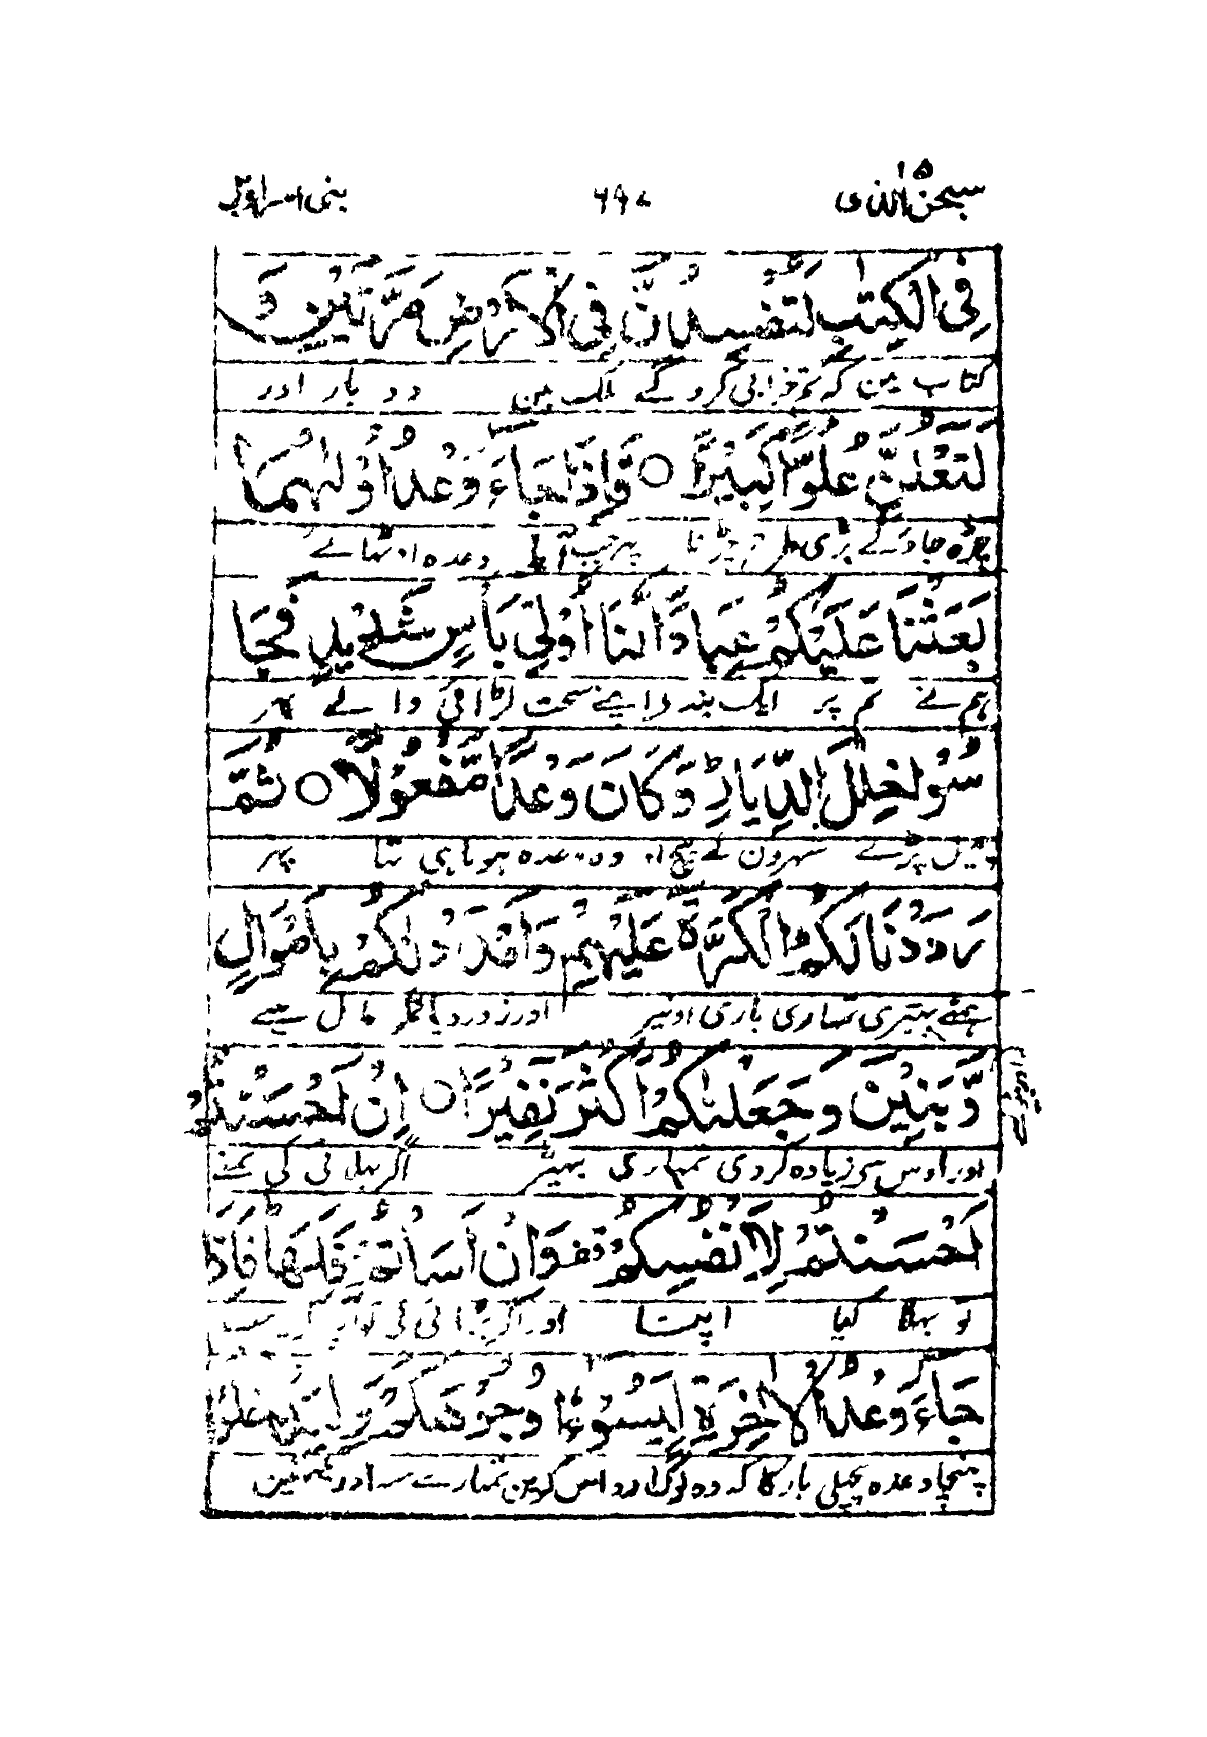 سبحن الذی ١٥
٦٩٨
بنی اسراءیل
فِی الْكِتٰبِ لَتُفْسِدُنَّ فِی الْاَرْضِ مَرَّتَیْنِ وَ
کتاب مین کہ تم خرابی کرو گے ملک مین دو بار اور
لَتَعْلُنَّ عُلُوًّا كَبِیْرًا ○ فَاِذَا جَآءَ وَعْدُ اُوْلٰىهُمَا
چڑہ جاؤگے بڑی طرح چڑنا پہر جب آیا وعدہ
بَعَثْنَا عَلَیْكُمْ عِبَادًا لَّنَاۤ اُولِیْ بَاْسٍ شَدِیْدٍ فَجَا
ہم نے تم پر ایک بندے اپنے سخت لڑائی والے پہر
سُوْا خِلٰلَ الدِّیَارِ وَ كَانَ وَعْدًا مَّفْعُوْلًا ○ ثُمَّ
پہیل پڑے شہرون کے بیچ اور وہ وعدہ ہونا ہی تہا پہر
رَدَدْنَا لَكُمُ الْكَرَّةَ عَلَیْهِمْ وَ اَمْدَدْنٰكُمْ بِاَمْوَالٍ
ہمنے پہیری تمہاری باری اونپر اور زور دیا تمکو مال سے
وَّ بَنِیْنَ وَ جَعَلْنٰكُمْ اَكْثَرَ نَفِیْرًا ○ اِنْ اَحْسَنْتُمْ
اور اوس سے زیادہ کردی تمہاری بہیڑ اگر بہلائی کی تمنے
اَحْسَنْتُمْ لِاَنْفُسِكُمْ وَ اِنْ اَسَاْتُمْ فَلَهَا فَاِذَا
تو بہلا کیا اپنا اور اگر برائی کی تو
جَآءَ وَعْدُ الْاٰخِرَةِ لِیَسُوْٓءٗا وُجُوْهَكُمْ وَ لِیَدْخُلُوا
پہنچا وعدہ پچہلی بار کا کہ وہ لوگ اوداس کرین تمہارے منہ اور